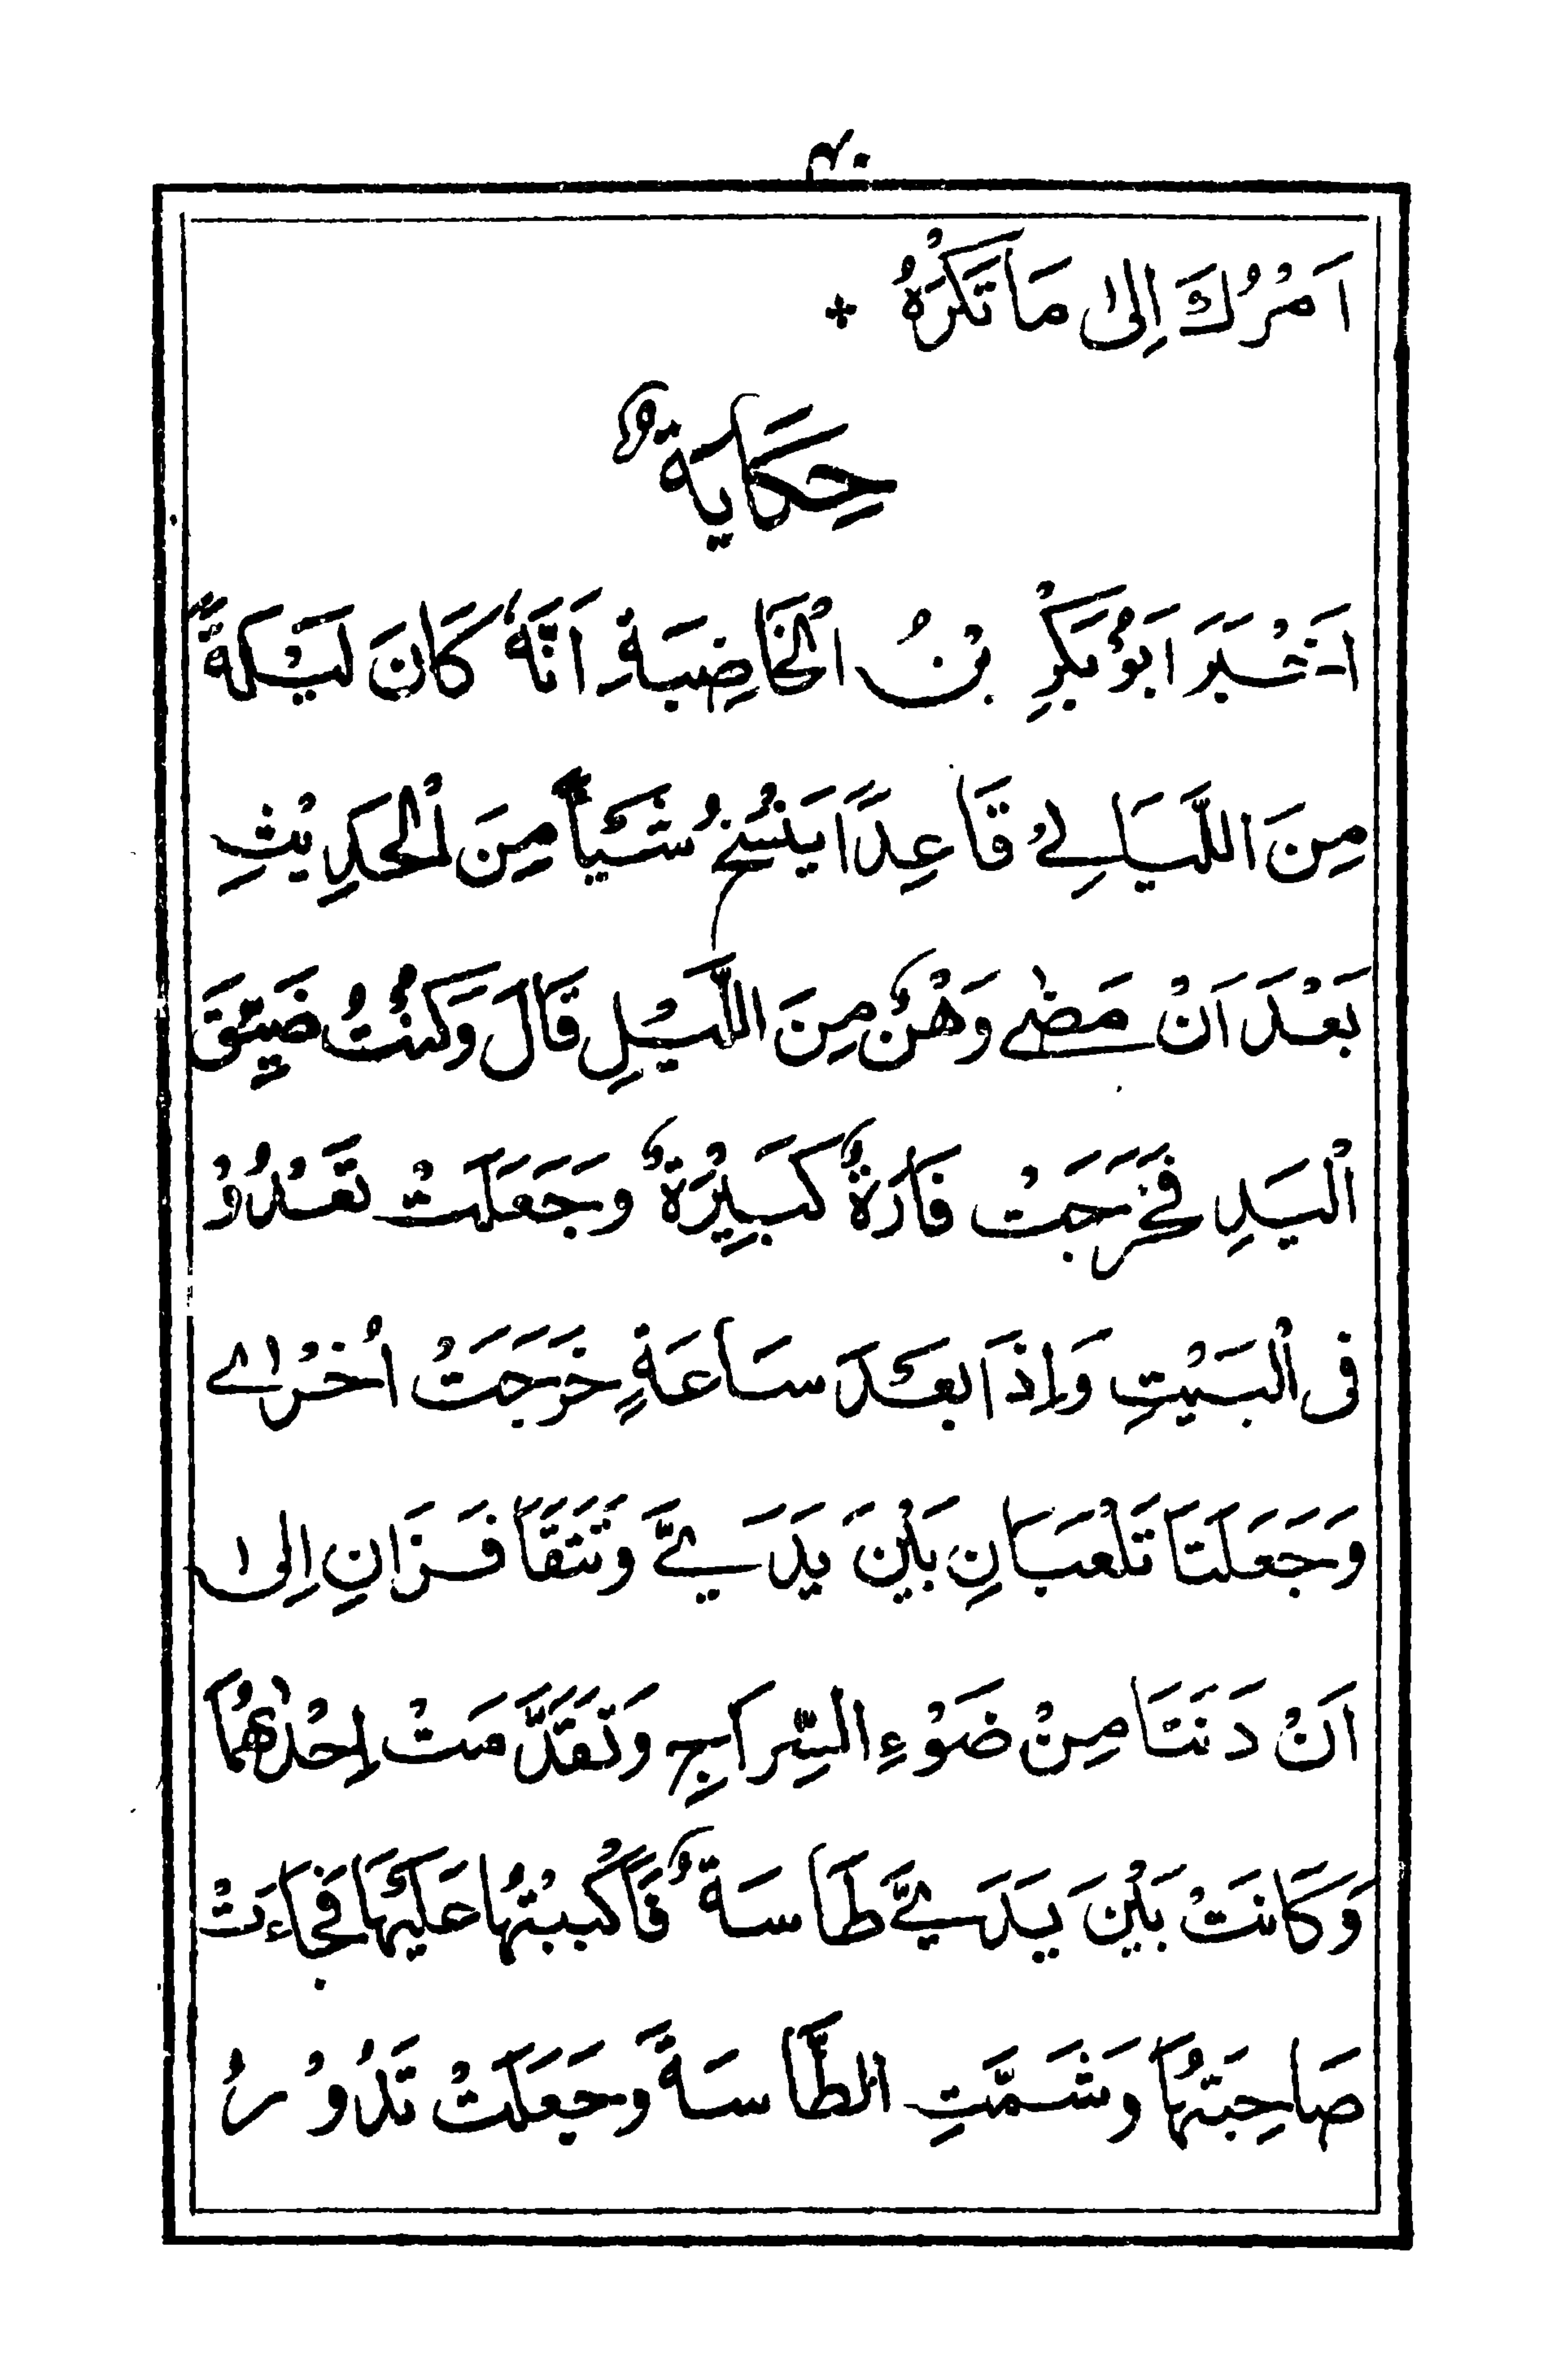 ٤٠
اَمْرُكَ اِلىٰ مَا تَكْرَهُ +
حِكَايَةٌ
اَخْبَرَ اَبُوْبَكْرِ بْنُ الْخَاضِبَةِ اَنَّهٗ كَانَ لَيْلَةً
مِنَ اللَّيَالِيْ قَاعِدًا يَنْسَخُ شَيْأً مِنَ الْحَدِيْثِ
بَعْدَ اَنْ مَضٰے وَهْنٌ مِنَ اللَّيْلِ قَالَ وَكُنْتُ ضَيِّقَ
الْيَدِ فَخَرَجَتْ فَارَةٌ كَبِيْرَةٌ وَجَعَلَتْ تَعْدُوْ
فى الْبَيْتِ وَاِذَا بَعْدَ سَاعَةٍ خَرَجَتْ اُخْرٰے
وَجَعَلَتَا تَلْعَبَانِ بَيْنَ يَدَيَّ وَتَتَقَافَزَانِ اِلىٰ
اَنْ دَنَتَا مِنْ ضَوْءِ السِّرَاجِ وَتَقَدَّمَتْ اِحْدٰهُمَا
وَكَانَتْ بَيْنَ يَدَيَّ طَاسَةٌ فَاَكْبَبْتُهَا عَلَيْهَا فَجَاءَتْ
صَاحِبَتُهَا وَشَمَّتِ الطَّاسَةَ وَجَعَلَتْ تَدُوْرُ